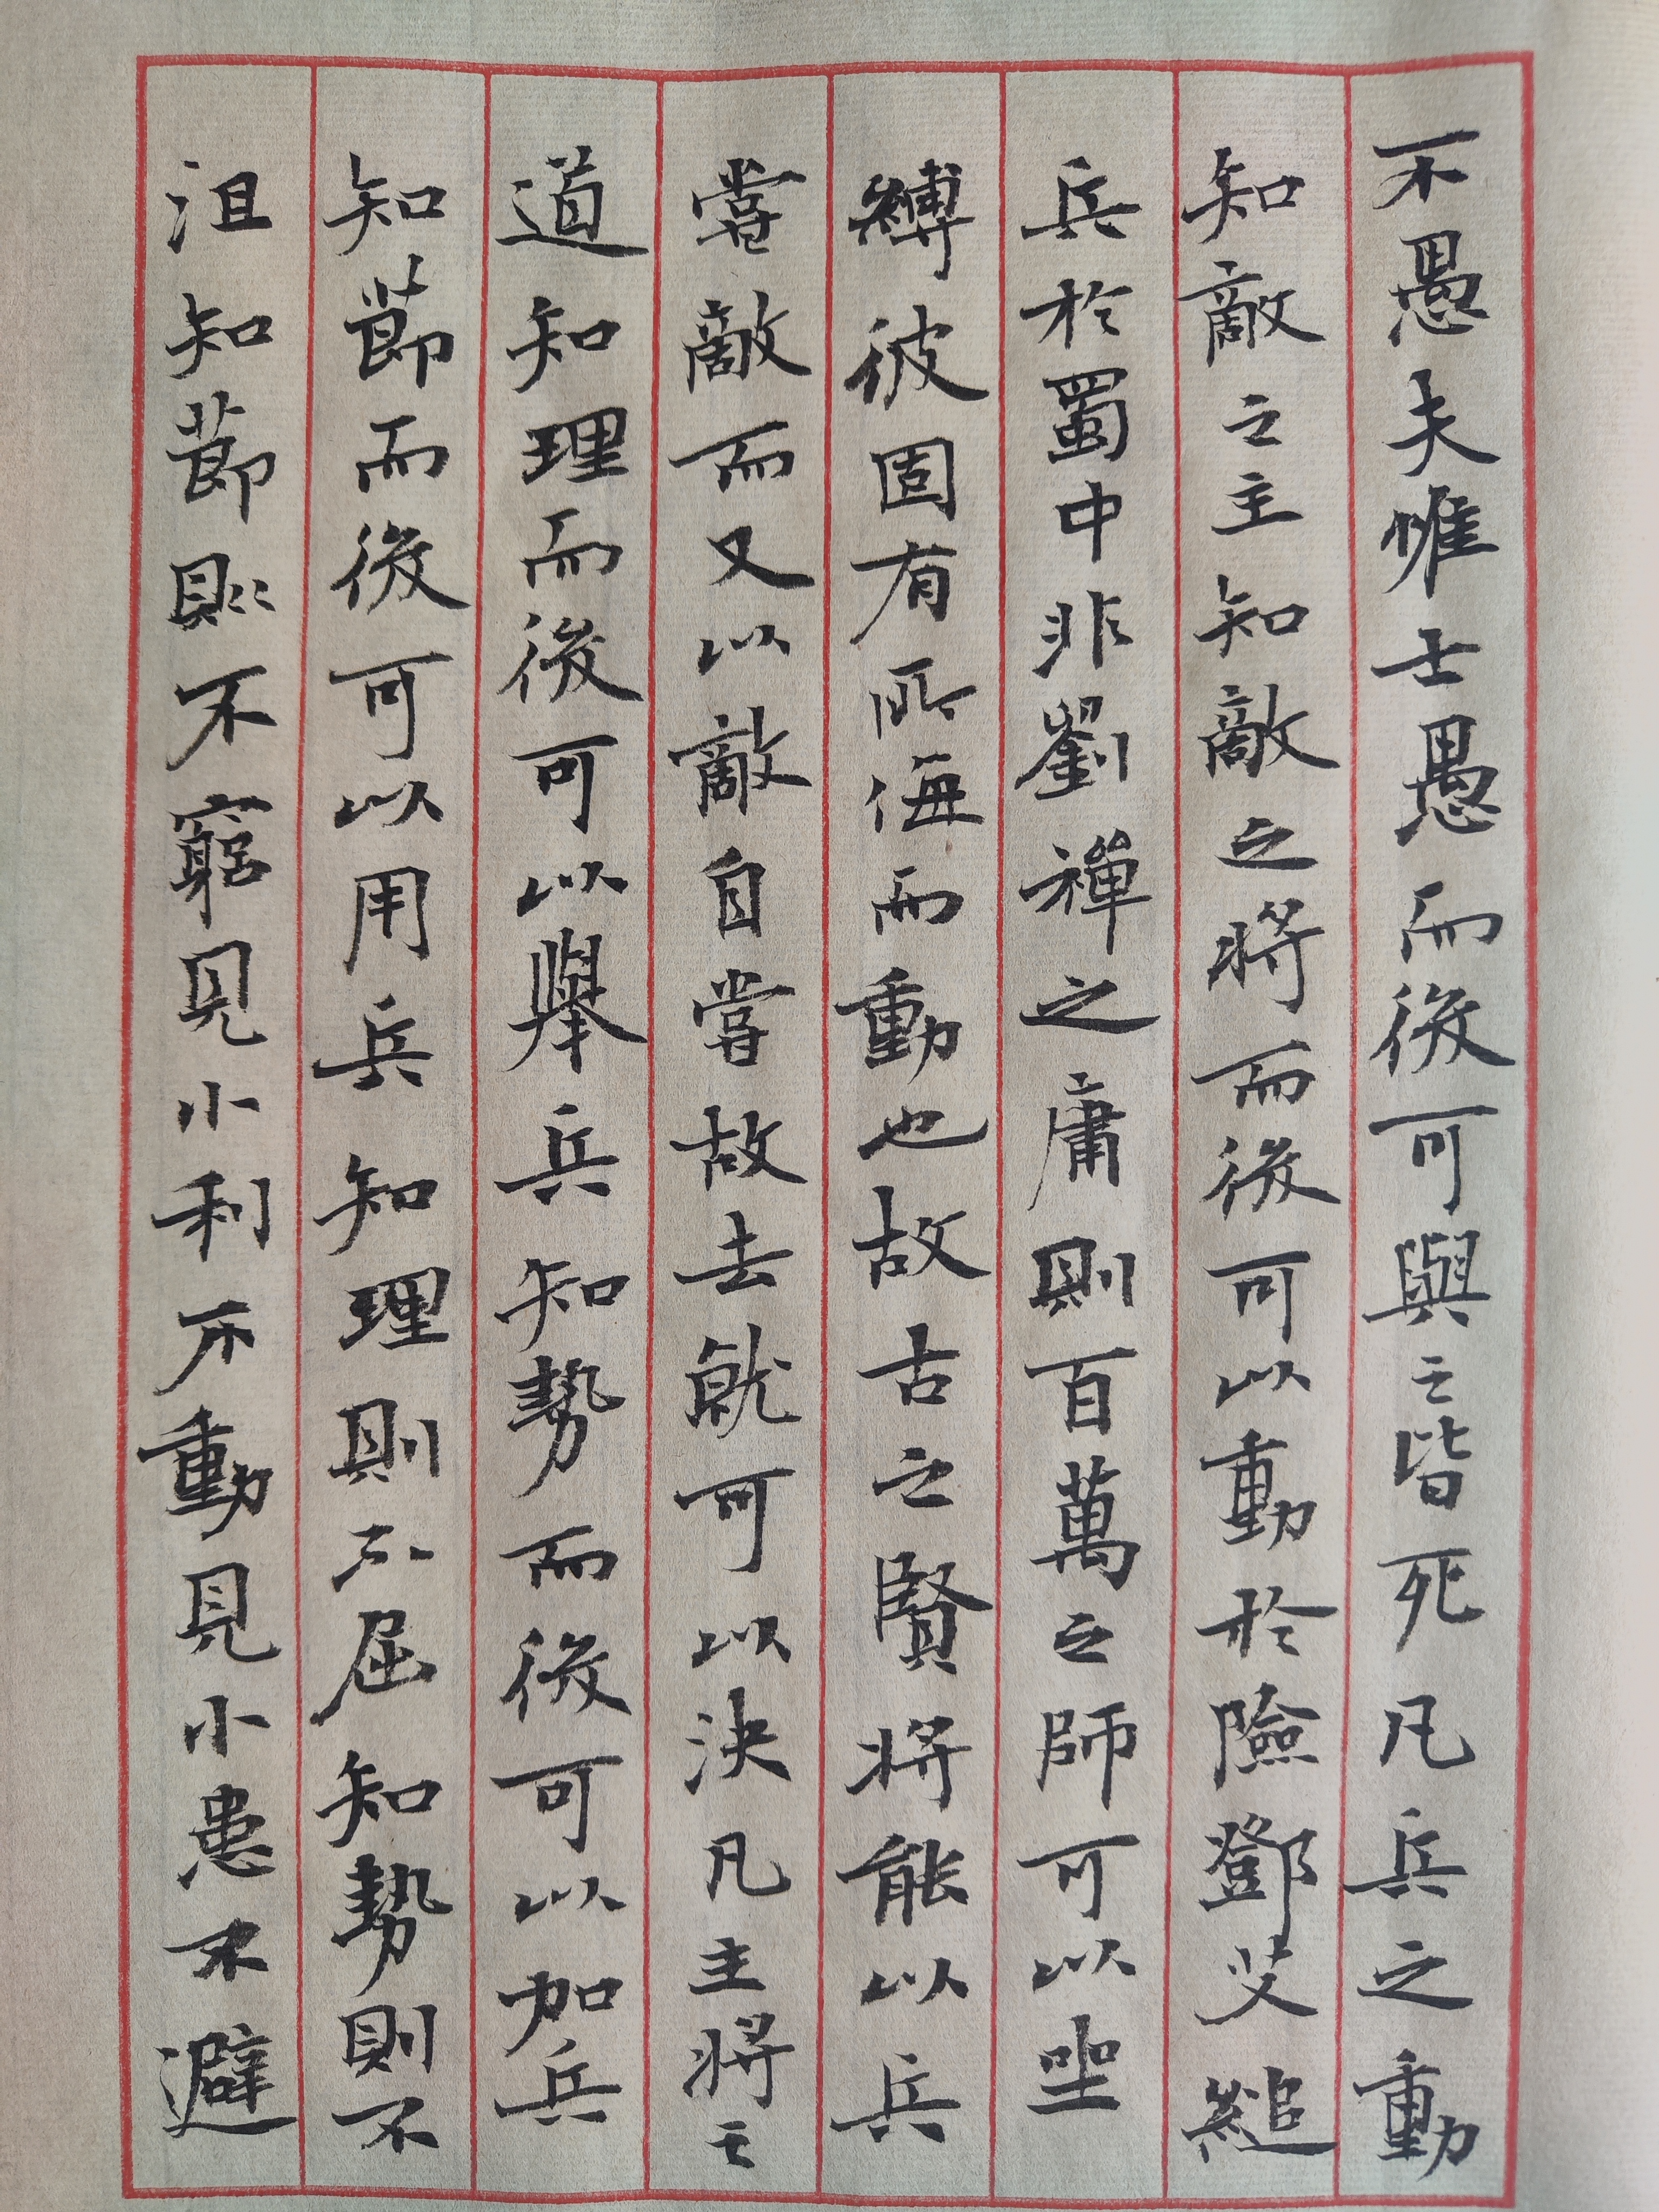 不愚夫惟士愚而後可與之皆死凡兵之動
知敵之主知敵之將而後可以動於險鄧艾縋
兵於蜀中非劉禪之庸則百萬之師可以坐
縛彼固有所侮而動也故古之賢將能以兵
嘗敵而又以敵自嘗故去就可以決凡主將之
道知理而後可以舉兵知勢而後可以加兵
知節而後可以用兵知理則不屈知勢則不
沮知節則不窮見小利不動見小患不避